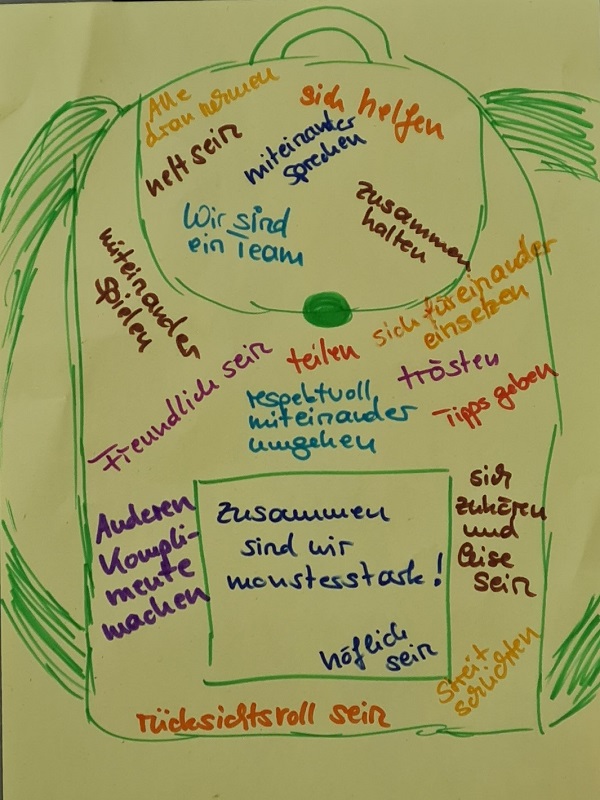 Alle
dran nehmen
sich helfen
nett sein
miteinander
sprechen
Wir sind
ein Team
zusammen
halten
miteinander
spielen
sich füreinander
einsetzen
Freundlich sein
teilen
trösten
respektvoll
miteinander
umgehen
Tipps geben
Anderen
Kompli-
mente
machen
Zusammen
sind wir
monsterstark!
höflich
sein
sich
zuhören
und
leise
sein
Streit
schlichten
rücksichtsvoll sein